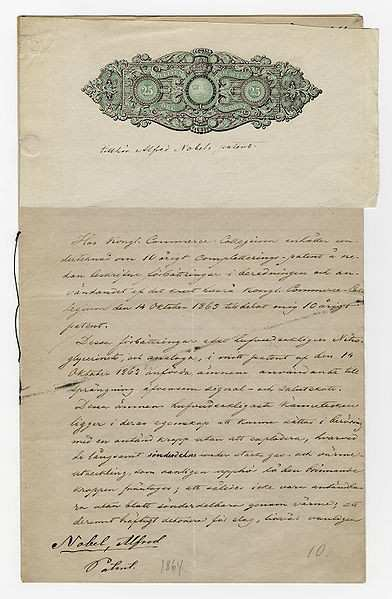 25 25
tillhör Alfred Nobels patent.
Hos Kongl. Commerce-Collegium anhåller un-
dertecknad om 10 årigt Completerings-patent å ne-
dan beskrifne förbättringar i beredningen och an-
vändandet af det krut hvarå Kongl. Commerce-Col-
legium den 14 Oktober 1863 tilldelat mig 10 årigt
patent.
Dessa förbättringar afse hufvudsakligen Nitro-
glycerinets, och analoga, i mitt patent af den 14
Oktober 1863 anförda ämnens användande till
sprängning äfvensom signal- och salutskott.
Dessa ämnens hufvudsakligaste kännetecken
ligger i deras egenskap att kunna sättas i beröring
med en antänd kropp utan att explodera, hvarvid
de långsamt sönderdelas under stark gas- och värme-
utveckling, som vanligen upphör så den brinnande
kroppen
ras utan blott sönderdelbara genom värme; att
deremot häftigt detonera för slag,
Nobel, Alfred
Patent. 1864 10.